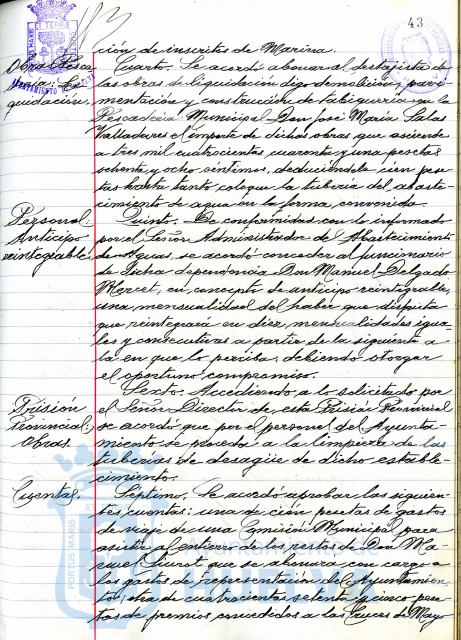 43
ción de inscritos de Marina.
Obras Pesca
dería. Li
quidación.
Cuarto. Se acordó abonar al destajista de
las obras de liquidación digo demolición, pavi-
mentación y construcción de tabiquería en la
Pescadería Municipal Don José María Salas
Valladares el importe de dichas obras que asciende
a tres mil cuatrocientas cuarenta y una pesetas
ochenta y ocho céntimos, deduciéndole cien pese
tas hasta tanto coloque la tubería del abaste-
cimiento de agua en la forma convenida.
Personal.
Anticipo
reintegrable.
Quinto. De conformidad con lo informado
por el Señor Administrador del Abastecimiento
de Aguas, se acordó conceder al funcionario
de dicha dependencia Don Manuel Delgado
Mercet, en concepto de anticipo reintegrable,
una mensualidad del haber que disfruta
que reintegrará en diez mensualidades igua-
les y consecutivas a partir de la siguiente a
la en que lo perciba, debiendo otorgar
el oportuno compromiso.
Prisión
Provincial.
Obras.
Sexto. Accediendo a lo solicitado por
el Señor Director de esta Prisión Provincial
se acordó que por el personal del Ayunta-
miento se proceda a la limpieza de las
tuberías de desagüe de dicho estable-
cimiento.
Cuentas.
Séptimo. Se acordó aprobar las siguien-
tes cuentas: una de cien pesetas de gastos
de viaje de una Comisión Municipal para
asistir al entierro de los restos de Don Ma-
nuel Siurot que se abonará con cargo a
los gastos de representación del Ayuntamien
to; otra de cuatrocientas setenta y cinco pese
tas de premios concedidos a las Cruces de Mayo
Ayuntamiento de
HUELVA
PORTUS MARIS